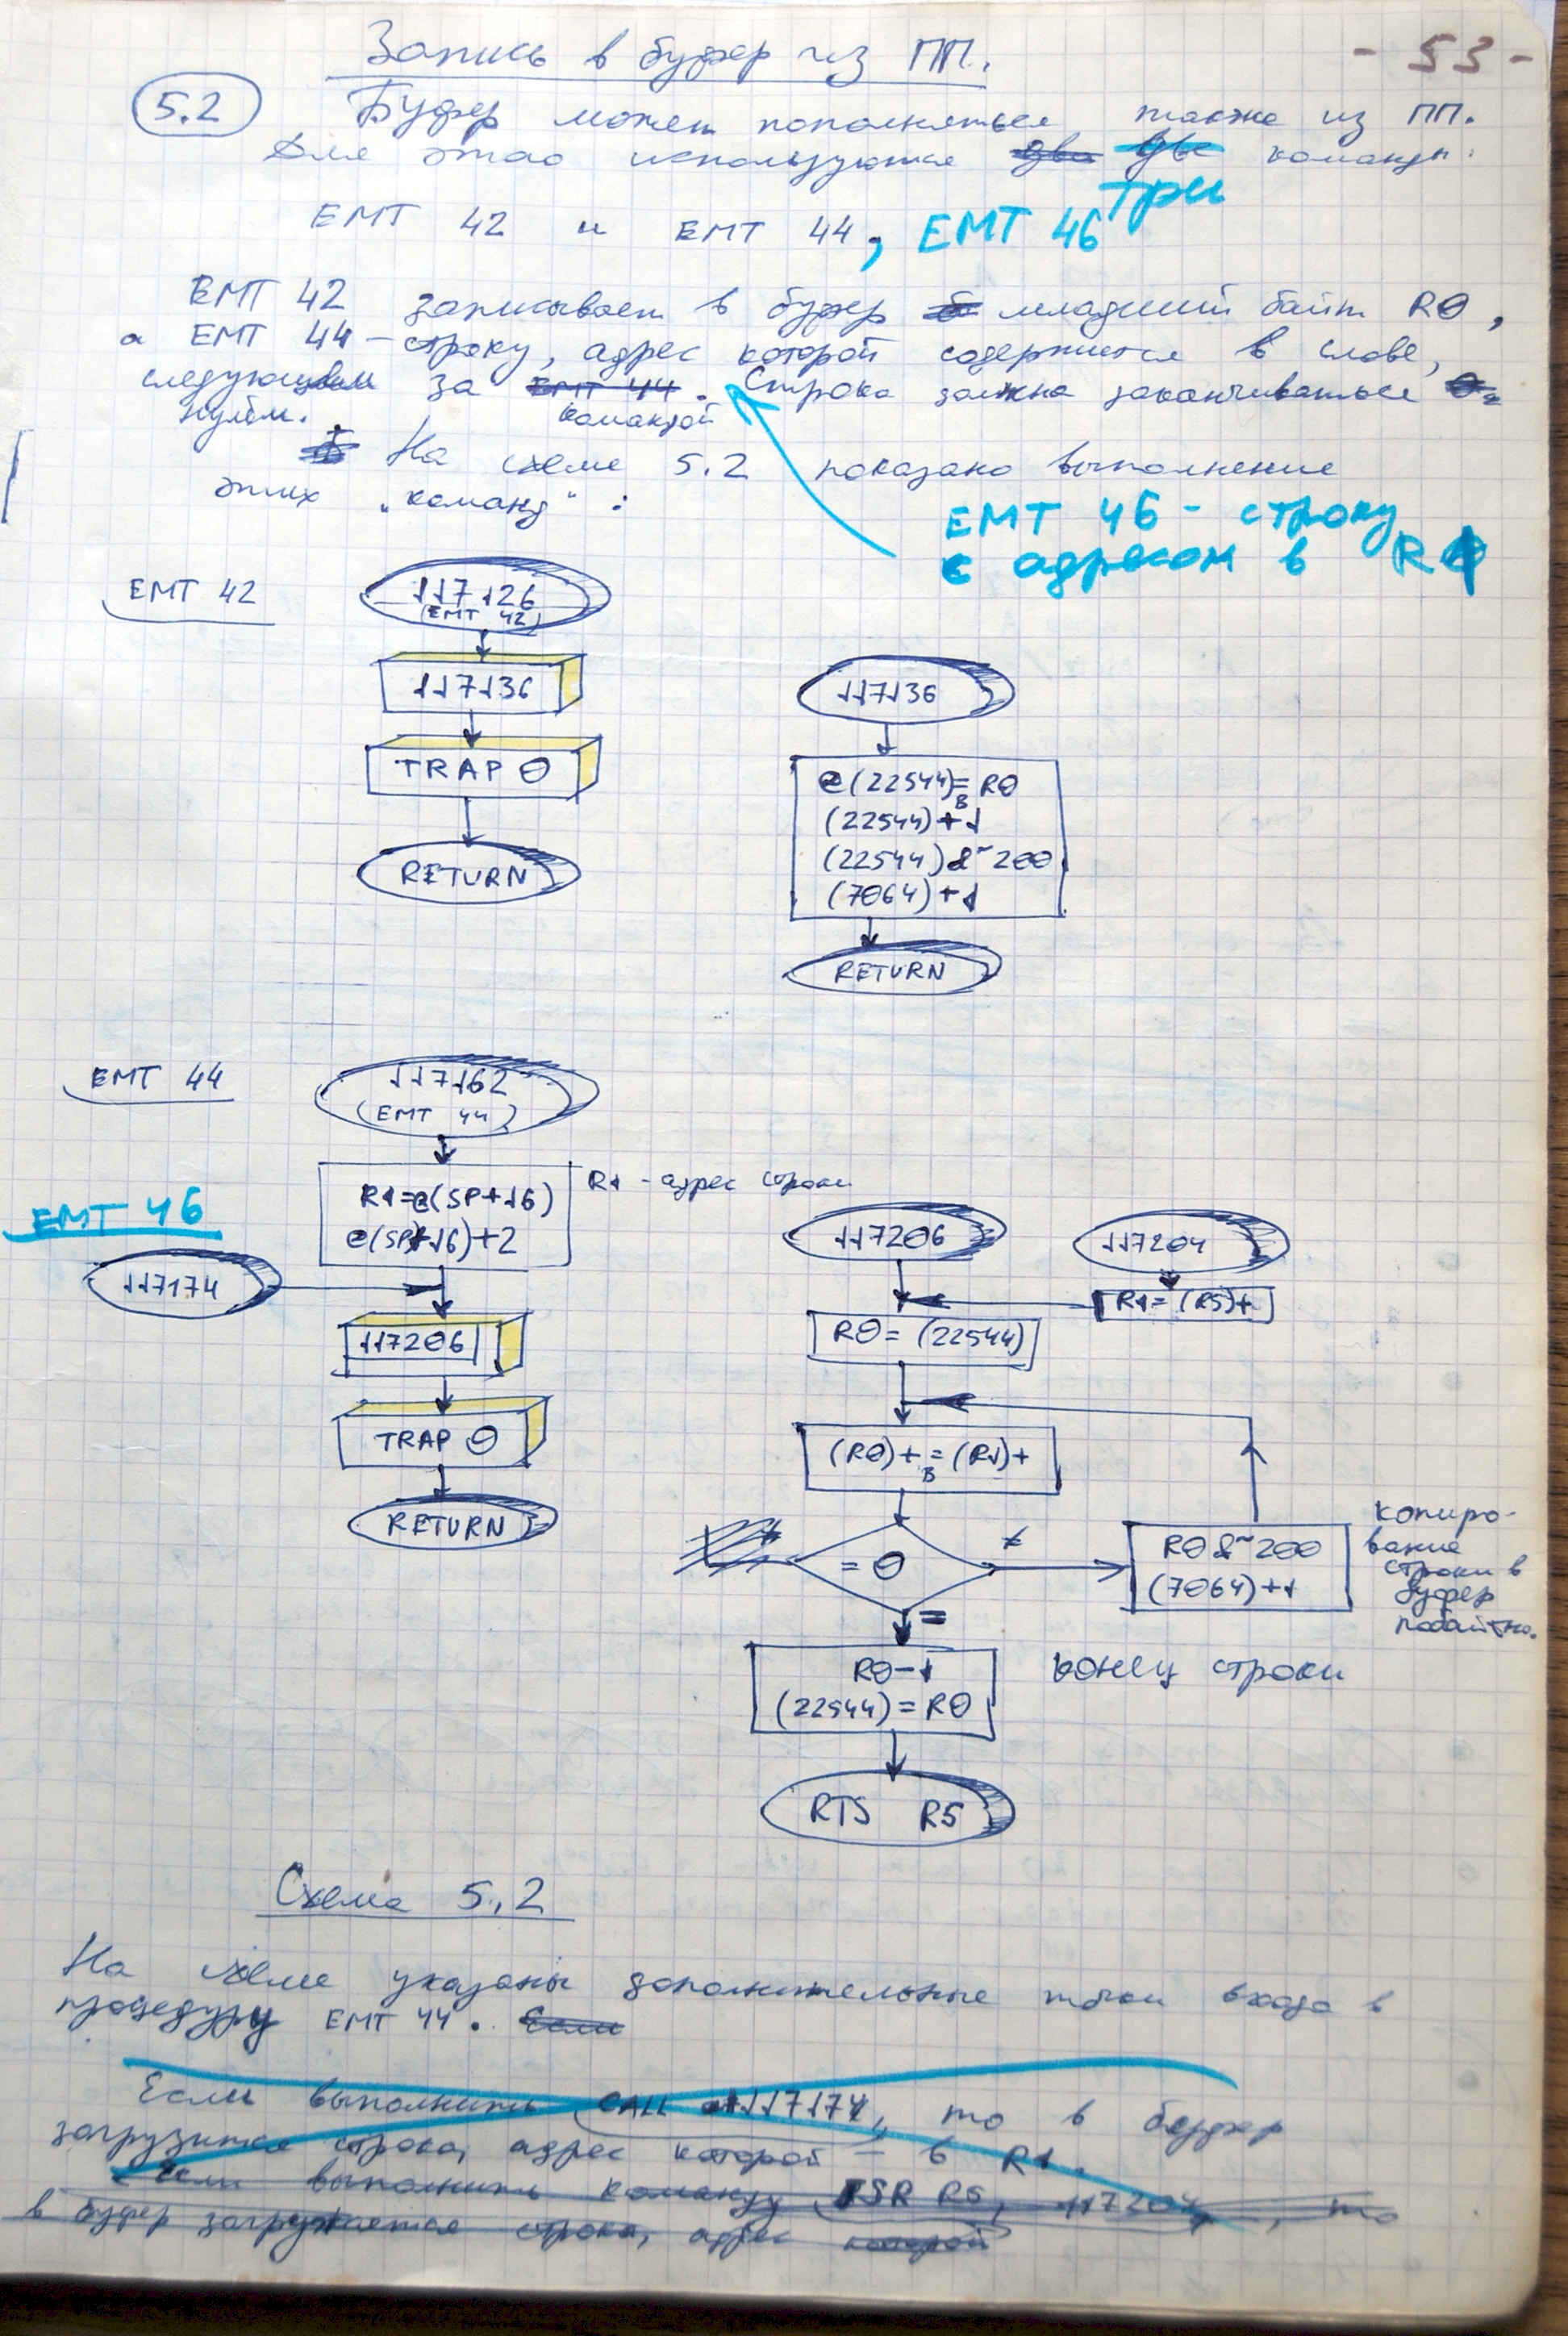 Запись в буфер из ПП.
- 53 -
5.2 Буфер может пополняться также из ПП.
Для этого используются два две три команды:
EMT 42 и EMT 44, EMT 46
EMT 42 записывает в буфер младший байт RΘ,
а EMT 44 - строку, адрес которой содержится в слове,
следующем за EMT 44 командой. Строка должна заканчиваться
нулём.
На схеме 5.2 показано выполнение
этих „команд“:
EMT 46 - строку
с адресом в R1
EMT 42
117126
(EMT 42)
117136
TRAP Θ
RETURN
117136
@(22544)=RΘ
B
(22544)+1
(22544)&~2ΘΘ
(7Θ64)+1
RETURN
EMT 44
117162
(EMT 44)
R1=@(SP+16)
@(SP+16)+2
R1 - адрес строки
EMT 46
117174
1172Θ6
TRAP Θ
RETURN
1172Θ6
1172Θ4
R1=(R5)+
RΘ=(22544)
(RΘ)+=(R1)+
B
=Θ
≠
RΘ&~2ΘΘ
(7Θ64)+1
копиро-
вание
строки в
буфер
побайтно.
=
RΘ-1
(22544)=RΘ
конец строки
RTS R5
Схема 5.2
На схеме указаны дополнительные точки входа в
процедуру EMT 44. Если
Если выполнить CALL @#117174, то в буфер
загрузится строка, адрес которой - в R1.
Если выполнить команду JSR R5, 117204, то
в буфер загружается строка, адрес которой